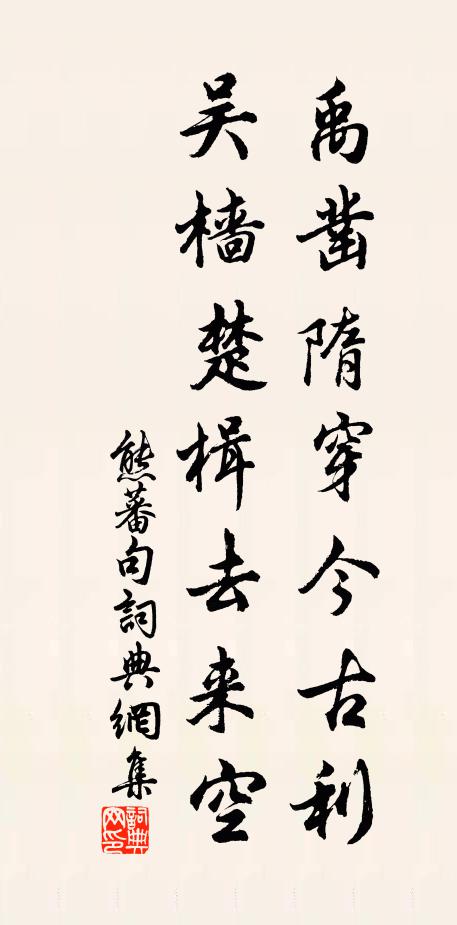 禹凿隋穿今古利
吴檣楚楫去来空
熊蕃句詞典網集
詞典网印